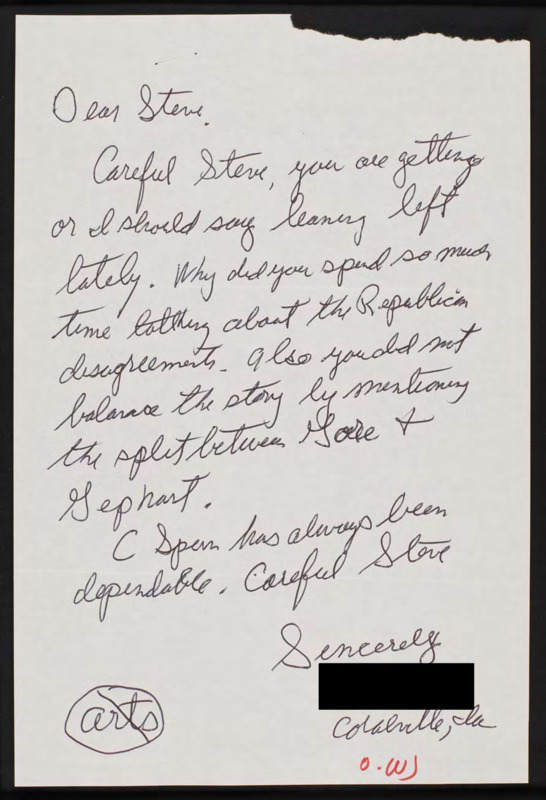 Dear Steve.
Careful Steve, you are getting
or I should say leaning left
lately. Why did you spend so much
time talking about the Republican
disagreements. Also you did not
balance the story by mentioning
the split between Gore &
Gephart.
C Span has always been
dependable. Careful Steve
Sincerely
Coralville, Ia
arts